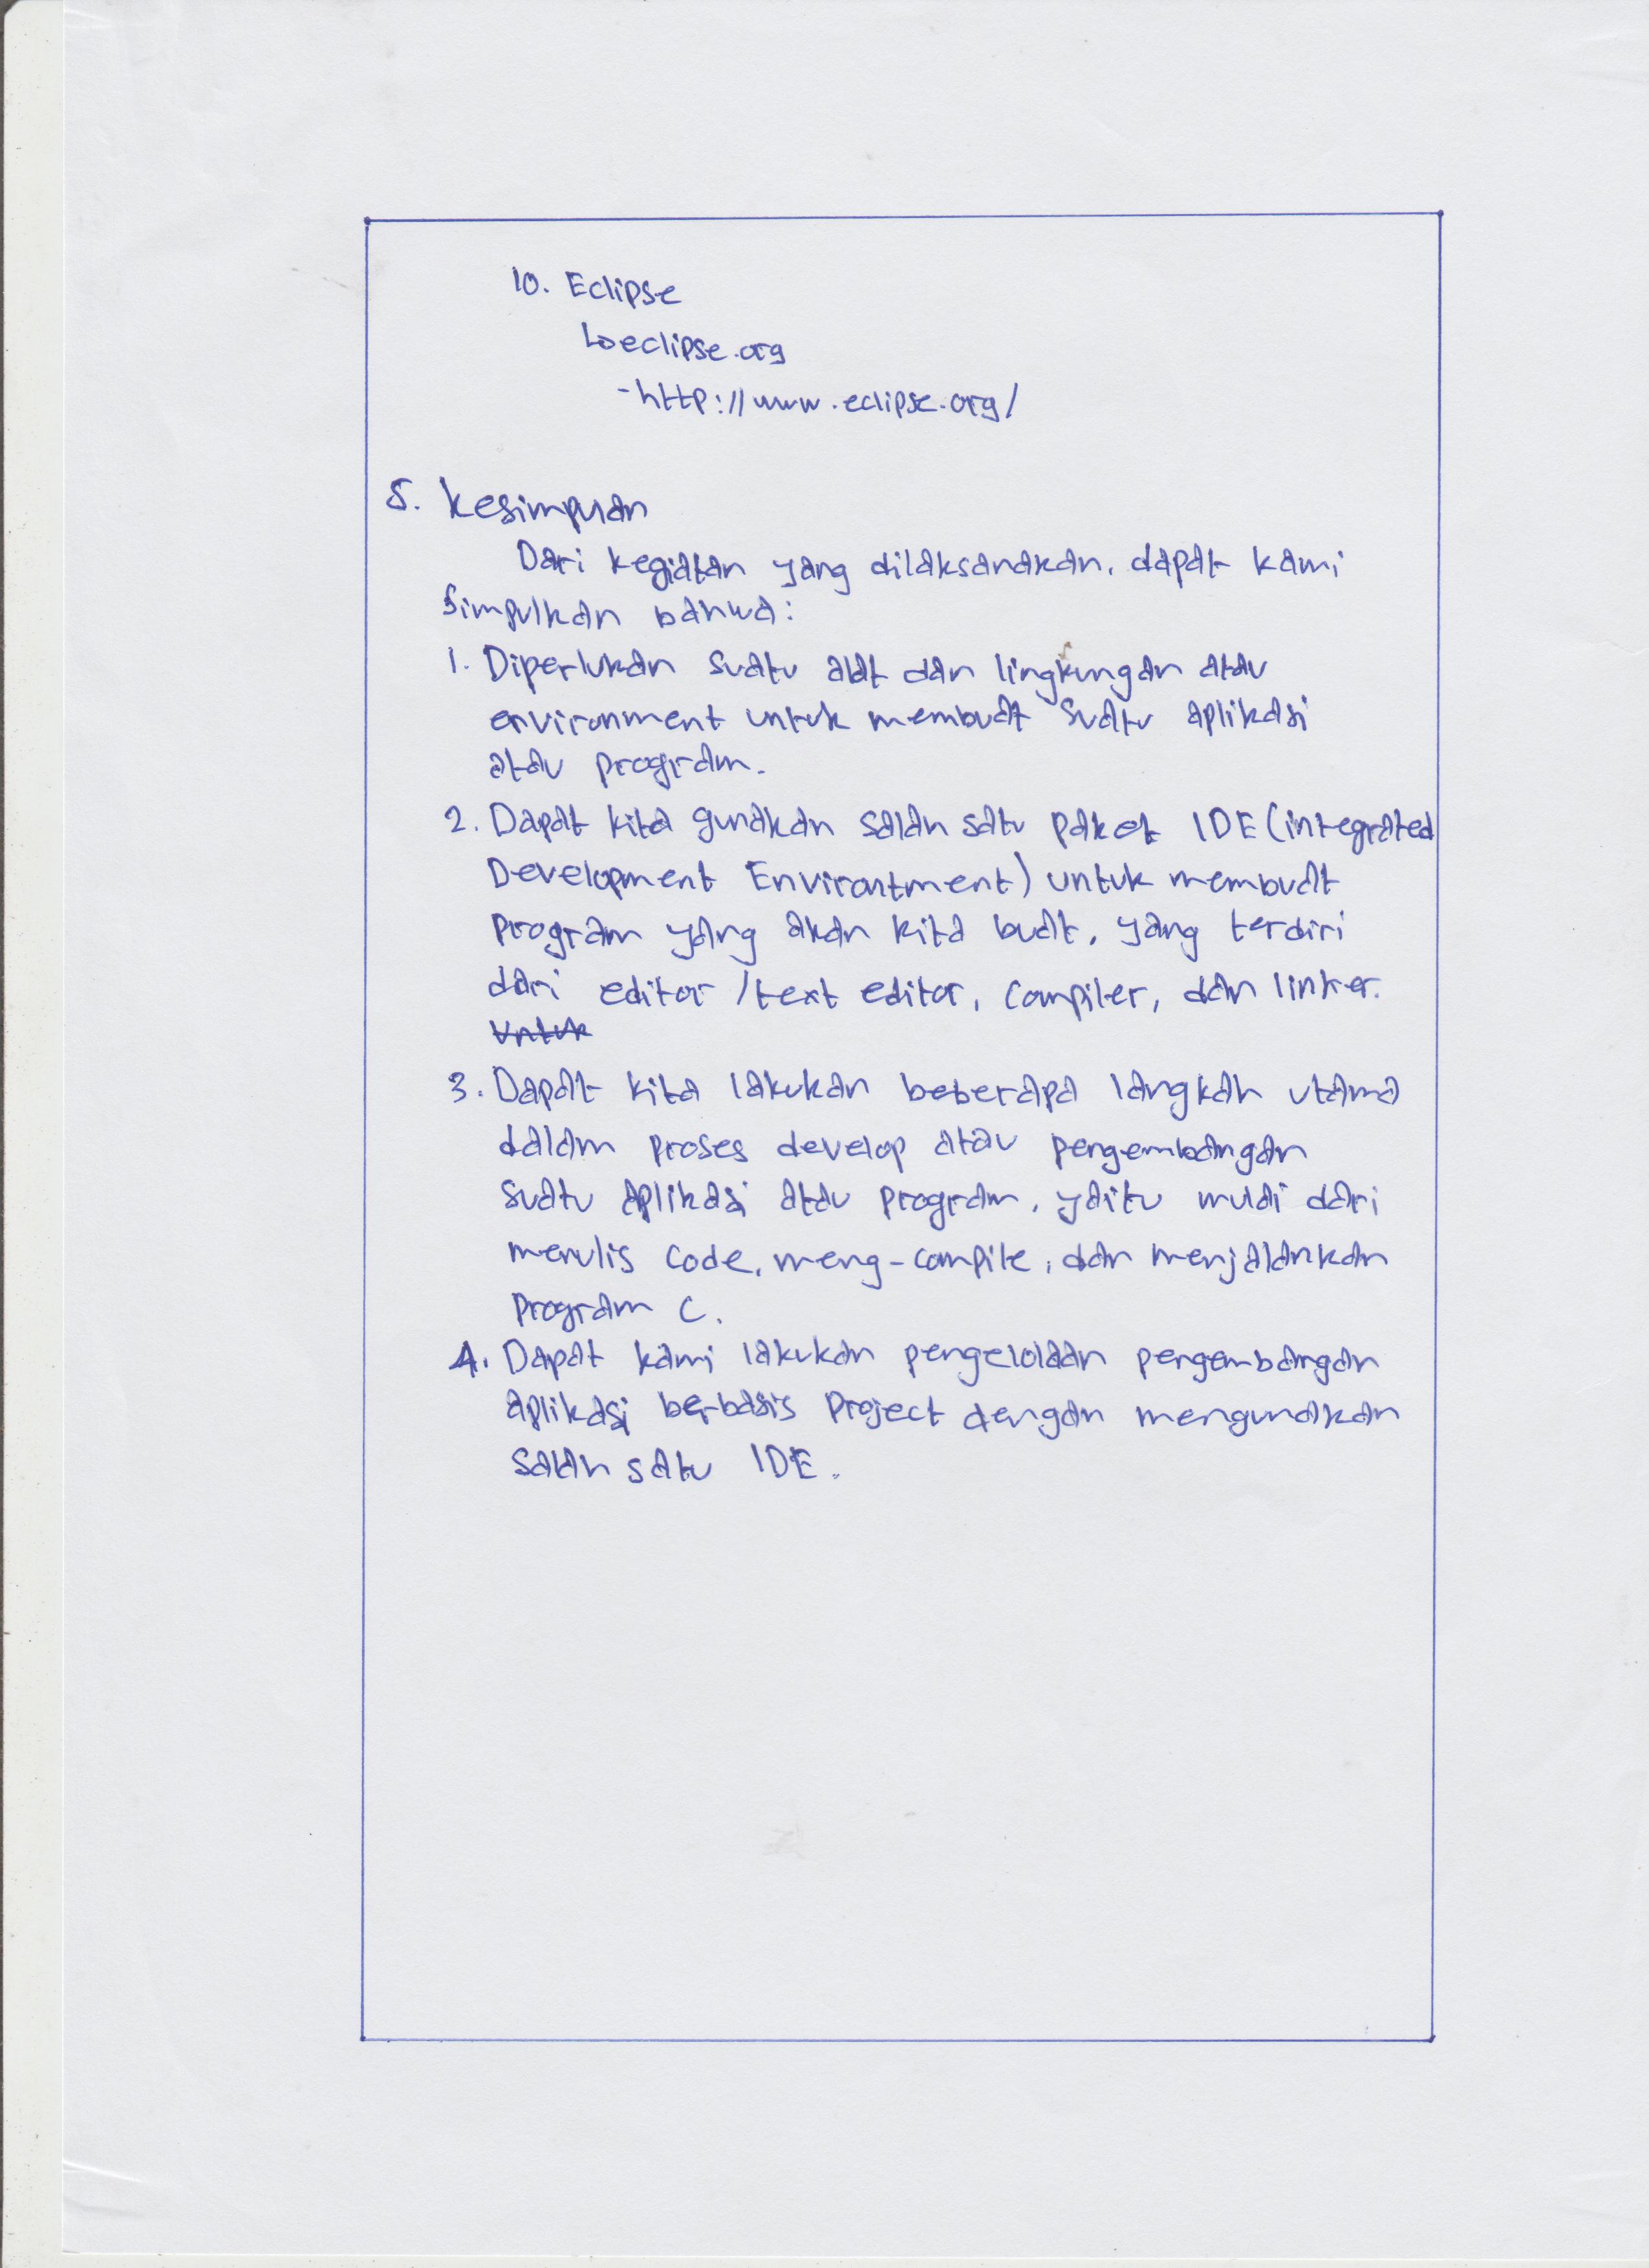 10. Eclipse
↳ eclipse.org
- http://www.eclipse.org/
5. Kesimpulan
Dari kegiatan yang dilaksanakan, dapat kami
simpulkan bahwa:
1. Diperlukan suatu alat dan lingkungan atau
environment untuk membuat suatu aplikasi
atau program.
2. Dapat kita gunakan salah satu paket IDE (integrated
Development Environtment) untuk membuat
program yang akan kita buat, yang terdiri
dari editor /text editor, compiler, dan linker.
Untuk
3. Dapat kita lakukan beberapa langkah utama
dalam proses develop atau pengembangan
suatu aplikasi atau program, yaitu mulai dari
menulis code, meng-compile, dan menjalankan
program C.
4. Dapat kami lakukan pengelolaan pengembangan
aplikasi berbasis Project dengan mengunakan
salah satu IDE.